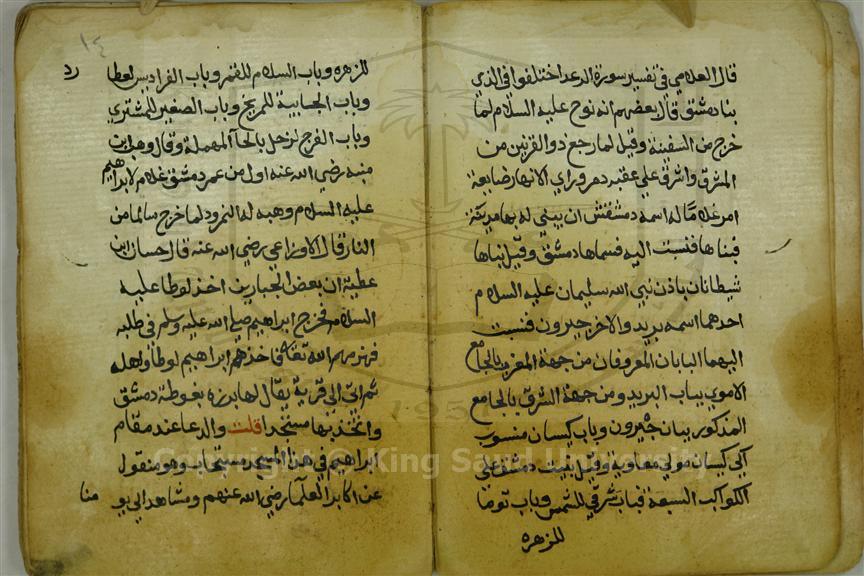 قال العلامي في تفسير سورة الرعد اختلفوا في الذي
بنا دمشق قال بعضهم انه نوح عليه السلام لما
خرج من السفينة وقيل لما رجع ذو القرنين من
المشرق واشرق علي عقبه دمر وراي الانهار ضايعة
امر غلاما له اسمه دمشقش ان يبني له بها مدينة
فبناها فنسبت اليه فسماها دمشق وقيل بناها
شيطانان باذن نبي الله سليمان عليه السلام
احدهما اسمه بريد والاخر جيرون فنسبت
اليهما البابان المعروفان من جهة المغرب بالجامع
الاموي بباب البريد ومن جهة الشرق بالجامع
المذكور بباب جيرون وباب كيسان منسوب
الي كيسان مولي معاوية وقيل بنيت دمشق علي
الكواكب السبعة فباب شرقي للشمس وباب توما
للزهره
١٤
للزهره وباب السلام للقمر وباب الفراديس لعطا
رد
وباب الجابية للمريخ وباب الصغير للمشتري
وباب الفرج لزحل بالحآ المهملة وقال وهب ابن
منبه رضي الله عنه اول من عمر دمشق غلام لابراهيم
عليه السلام وهبه له النمرود لما خرج سالما من
النار قال الاوزاعي رضي الله عنه قال حسان ابن
عطية ان بعض الجبارين اخذ لوطا عليه
السلام فخرج ابراهيم صلي الله عليه وسلم في طلبه
فهزمهم الله تعالي فاخذهم ابراهيم لوطا واهله
ثم اتي الي قرية يقال لها برزه بغوطة دمشق
واتخذ بها مسجدا قلت والدعا عند مقام
ابراهيم في هذا المسجد مستجاب وهو منقول
عن اكابر العلمآ رضي الله عنهم ومشاهد الي يو
منا
1957
Copyright © King Saud University